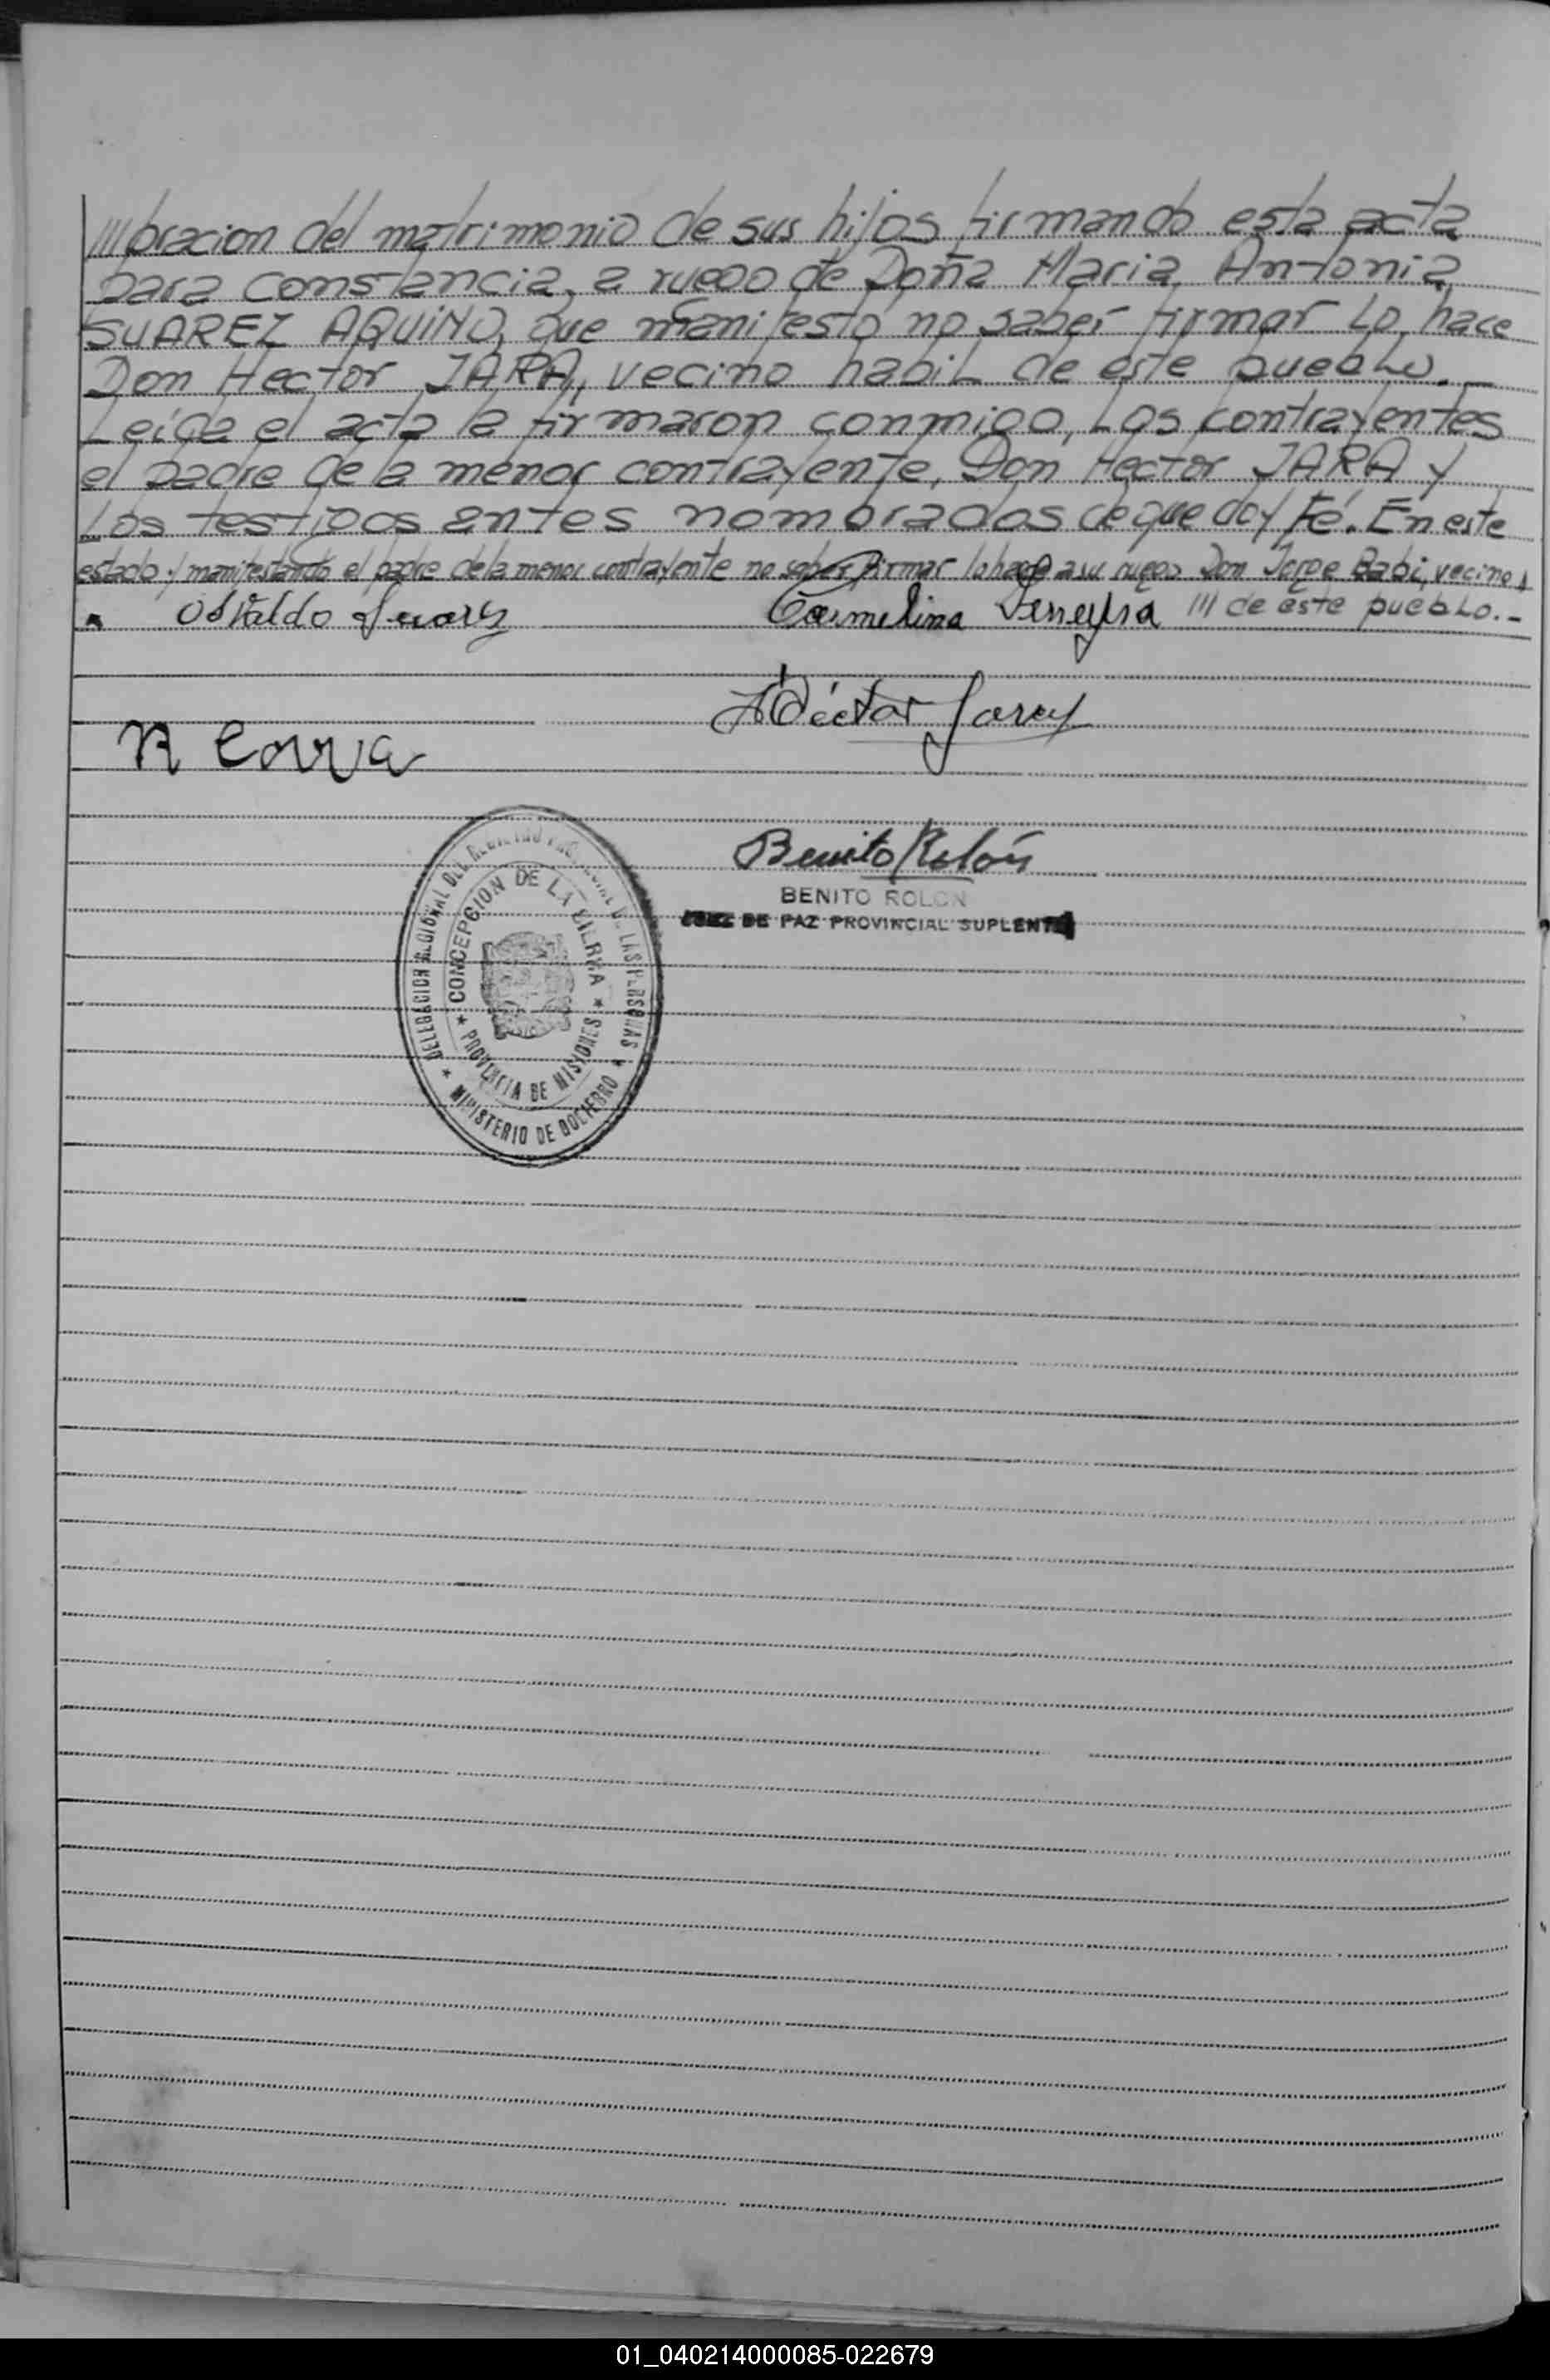 ///bracion del matrimonio de sus hijos firmando esta acta
para constancia, a ruego de Doña Maria Antonia
SUAREZ AQUINO, que manifestó no saber firmar Lo hace
Don Hector JARA, vecino habil de este pueblo.-
Leída el acta la firmaron conmigo, Los contrayentes
el padre de la menor contrayente, Don Hector JARA y
Los testigos antes nombrados de que doy Fé. En este
estado y manifestando el padre de la menor contrayente no saber firmar lo hace a su ruego Don Jorge Babi, vecino
/// de este pueblo.-
Osvaldo Suarez
Carmelina Ferreyra
Héctor Jara
Benito Rolón
BENITO ROLON
JUEZ DE PAZ PROVINCIAL SUPLENTE
DELEGACION REGIONAL DEL REGISTRO PROVINCIAL DE LAS PERSONAS
CONCEPCION DE LA SIERRA
PROVINCIA DE MISIONES
MINISTERIO DE GOBIERNO
01_040214000085-022679